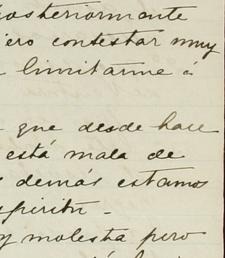 posteriormente
iero contestar muy
limitarme á
que desde hace
está mala de
demás estamos
spiritu.
y molesta pero